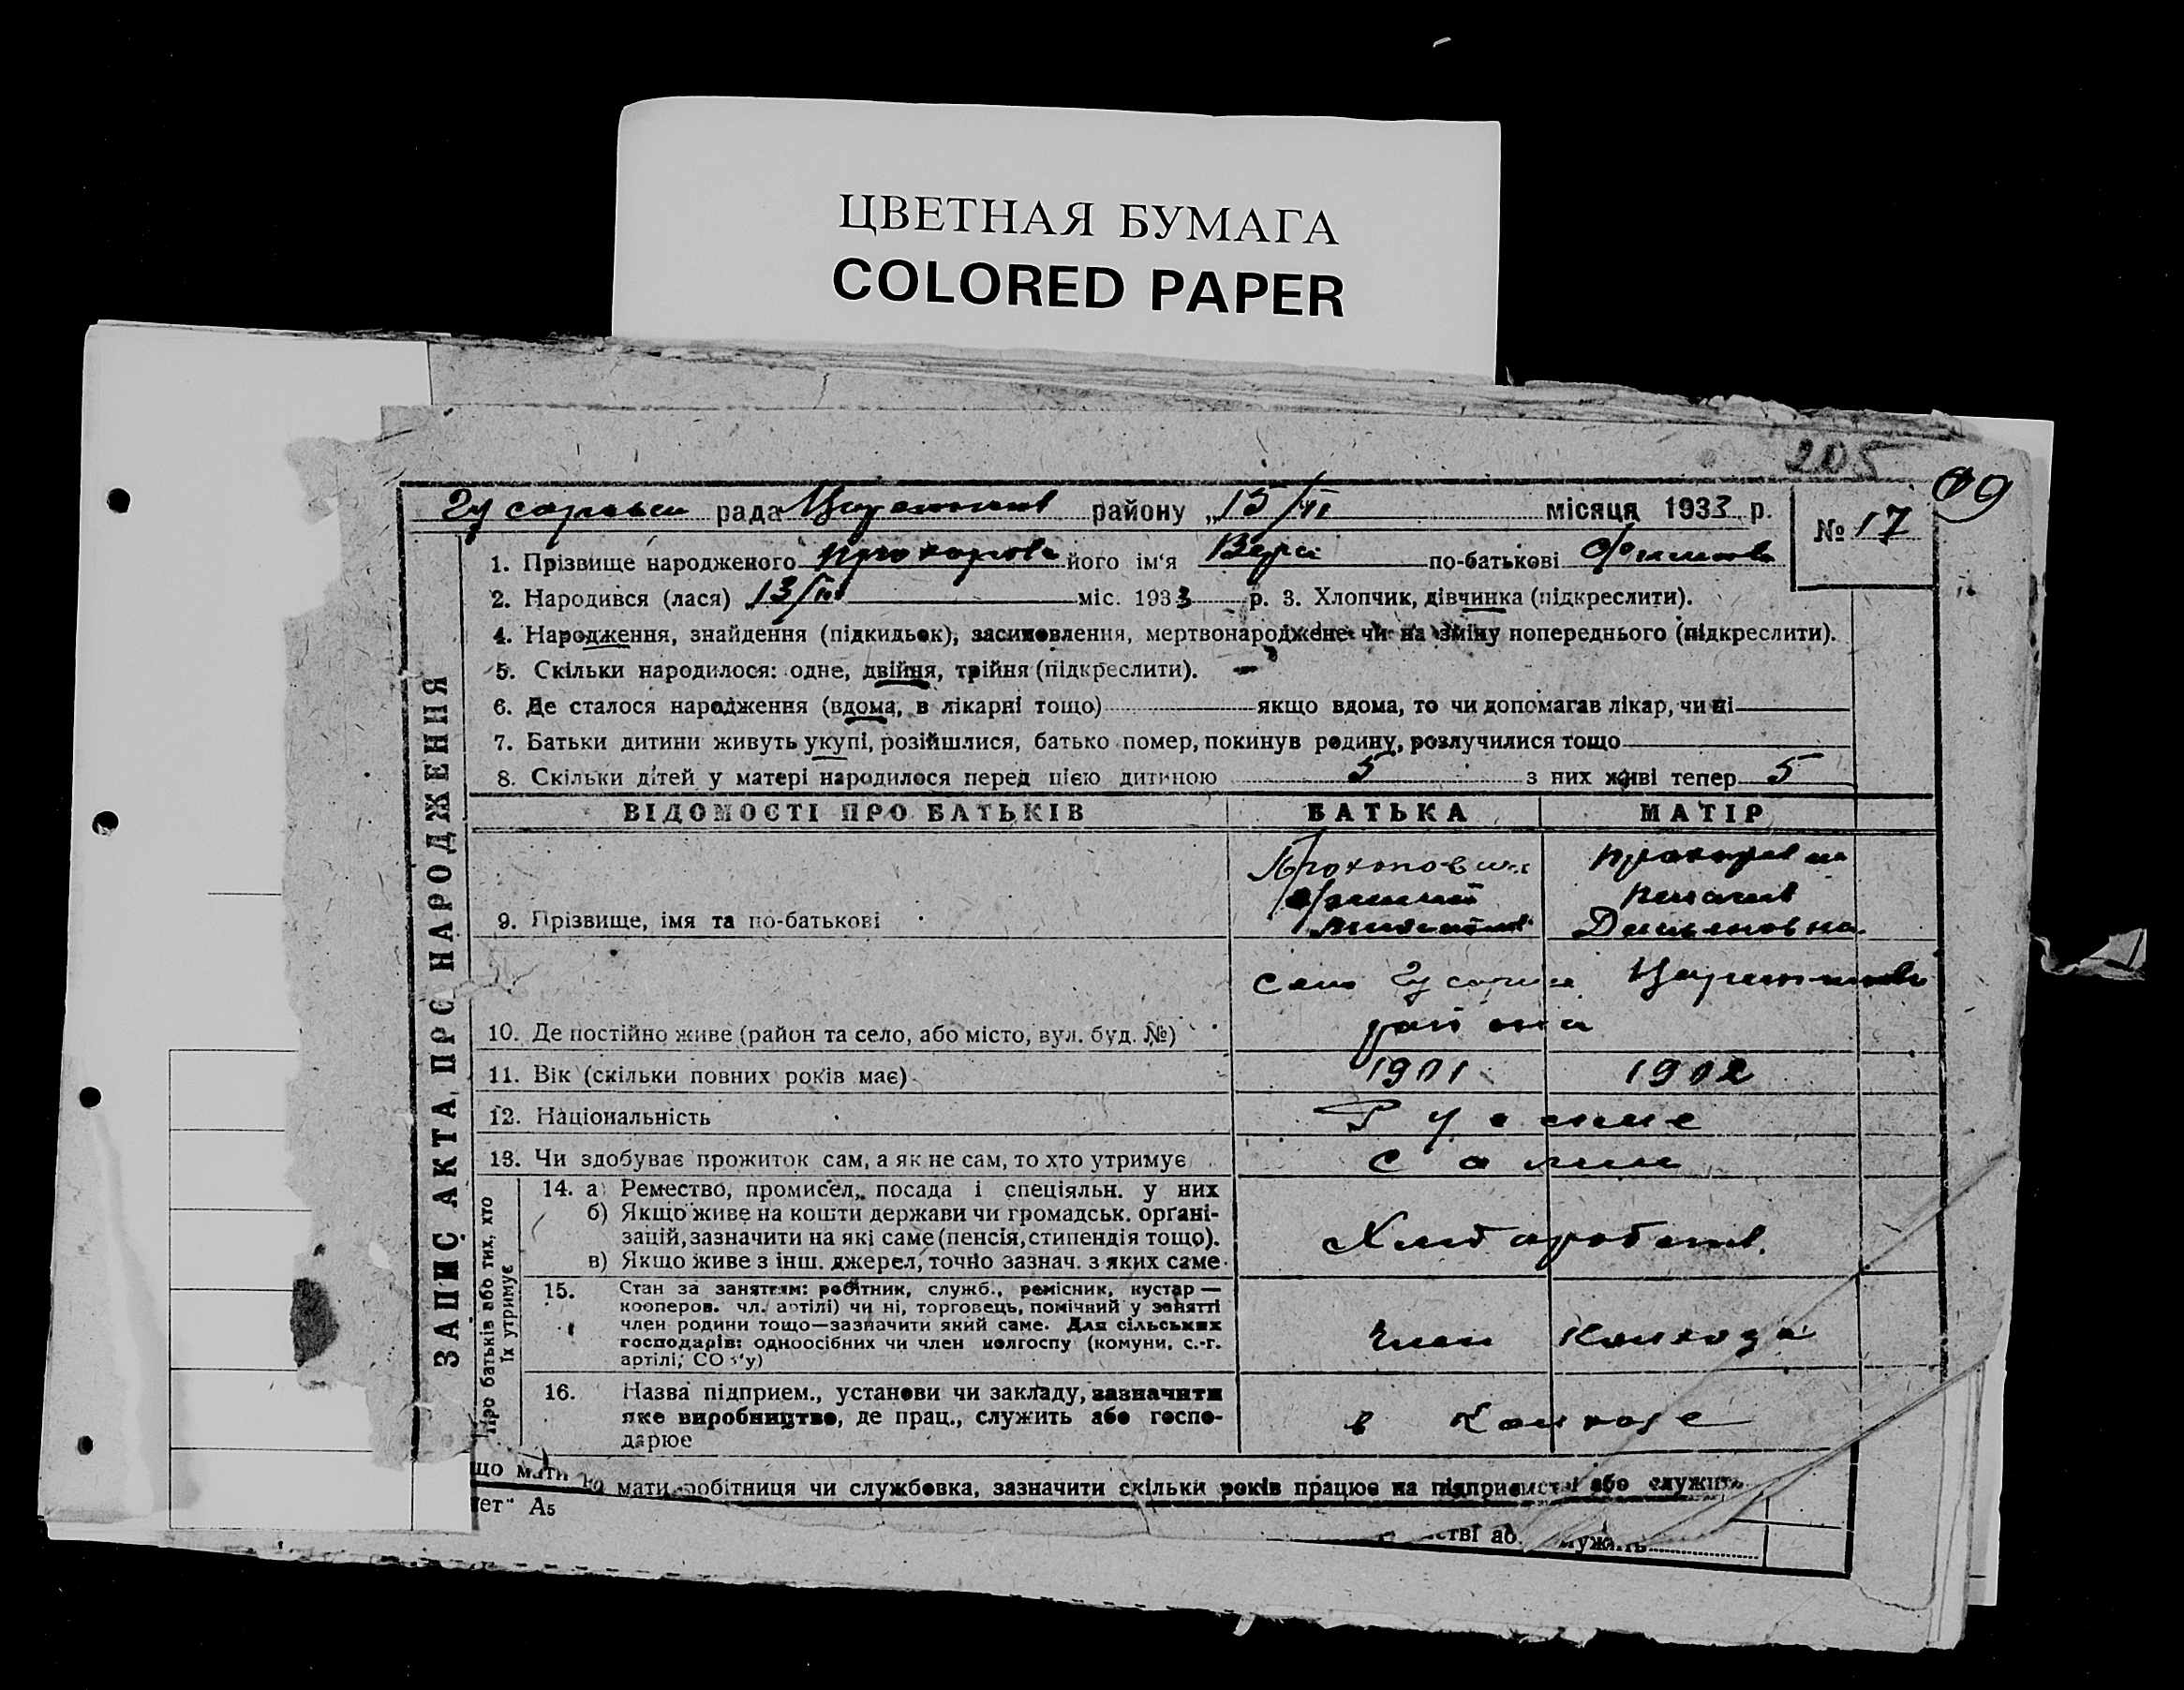 ЦВЕТНАЯ БУМАГА
COLORED PAPER
205
99
рада району „15/VI місяця 1933 р. № 17
1. Прізвище народженого його ім'я Вера по-батькові
2. Народився (лася) 13/ міс. 1933 р. 3. Хлопчик, дівчинка (підкреслити).
4. Народження, знайдення (підкидьок), засиновлення, мертвонароджене чи на зміну попереднього (підкреслити).
5. Скільки народилося: одне, двійня, трійня (підкреслити).
6. Де сталося народження (вдома, в лікарні тощо) якщо вдома, то чи допомагав лікар, чи ні
7. Батьки дитини живуть укупі, розійшлися, батько помер, покинув родину, розлучилися тощо
8. Скільки дітей у матері народилося перед цією дитиною 5 з них живі тепер 5
ВІДОМОСТІ ПРО БАТЬКІВ БАТЬКА МАТІР
9. Прізвище, імя та по-батькові
Демьяновна
село
10. Де постійно живе (район та село, або місто, вул. буд. №) района
11. Вік (скільки повних років має) 1901 1902
12. Національність Руские
13. Чи здобуває прожиток сам, а як не сам, то хто утримує сами
14. а) Ремество, промисел, посада і спеціяльн. у них
б) Якщо живе на кошти держави чи громадськ. органі-
зацій, зазначити на які саме (пенсія, стипендія тощо).
в) Якщо живе з інш. джерел, точно зазнач. з яких саме
15. Стан за заняттям: робітник, служб., ремісник, кустар —
кооперов. чл. артілі) чи ні, торговець, помічний у занятті
член родини тощо—зазначити який саме. Для сільських
господарів: одноосібних чи член колгоспу (комуни, с.-г.
артілі, СОЗ'у)
член колхоза
16. Назва підприєм., установи чи закладу, зазначити
яке виробництво, де прац., служить або госпо-
дарює
в колхозе
ЗАПИС АКТА ПРО НАРОДЖЕННЯ
Про батьків або тих, хто
їх утримує
що мати
мати робітниця чи службовка, зазначити скільки років працює на підприємстві або служить
ет" А5